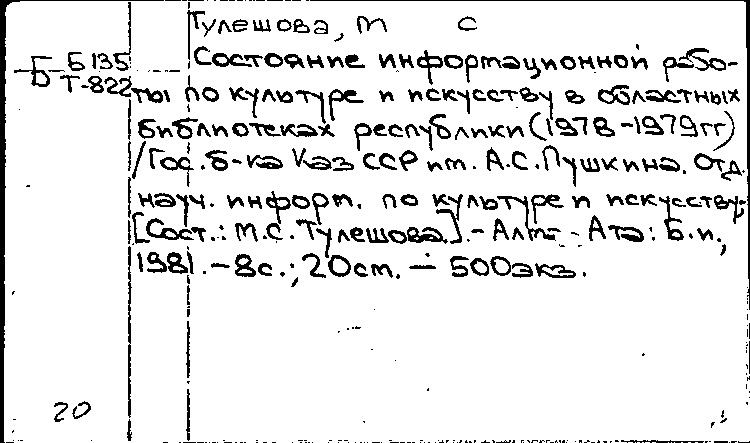 Тулешова, М С
Б Б135
Т-822
Состояние информационной рабо-
ты по культуре и искусству в областных
библиотеках республики (1978-1979гг)
/Гос. б-ка Каз ССР им. А.С.Пушкина. Отд.
науч. информ. по культуре и искусству;
[Сост.: М.С.Тулешова.].-Алма-Ата: Б.и.,
1981.-8с.; 20см. — 500экз.
20